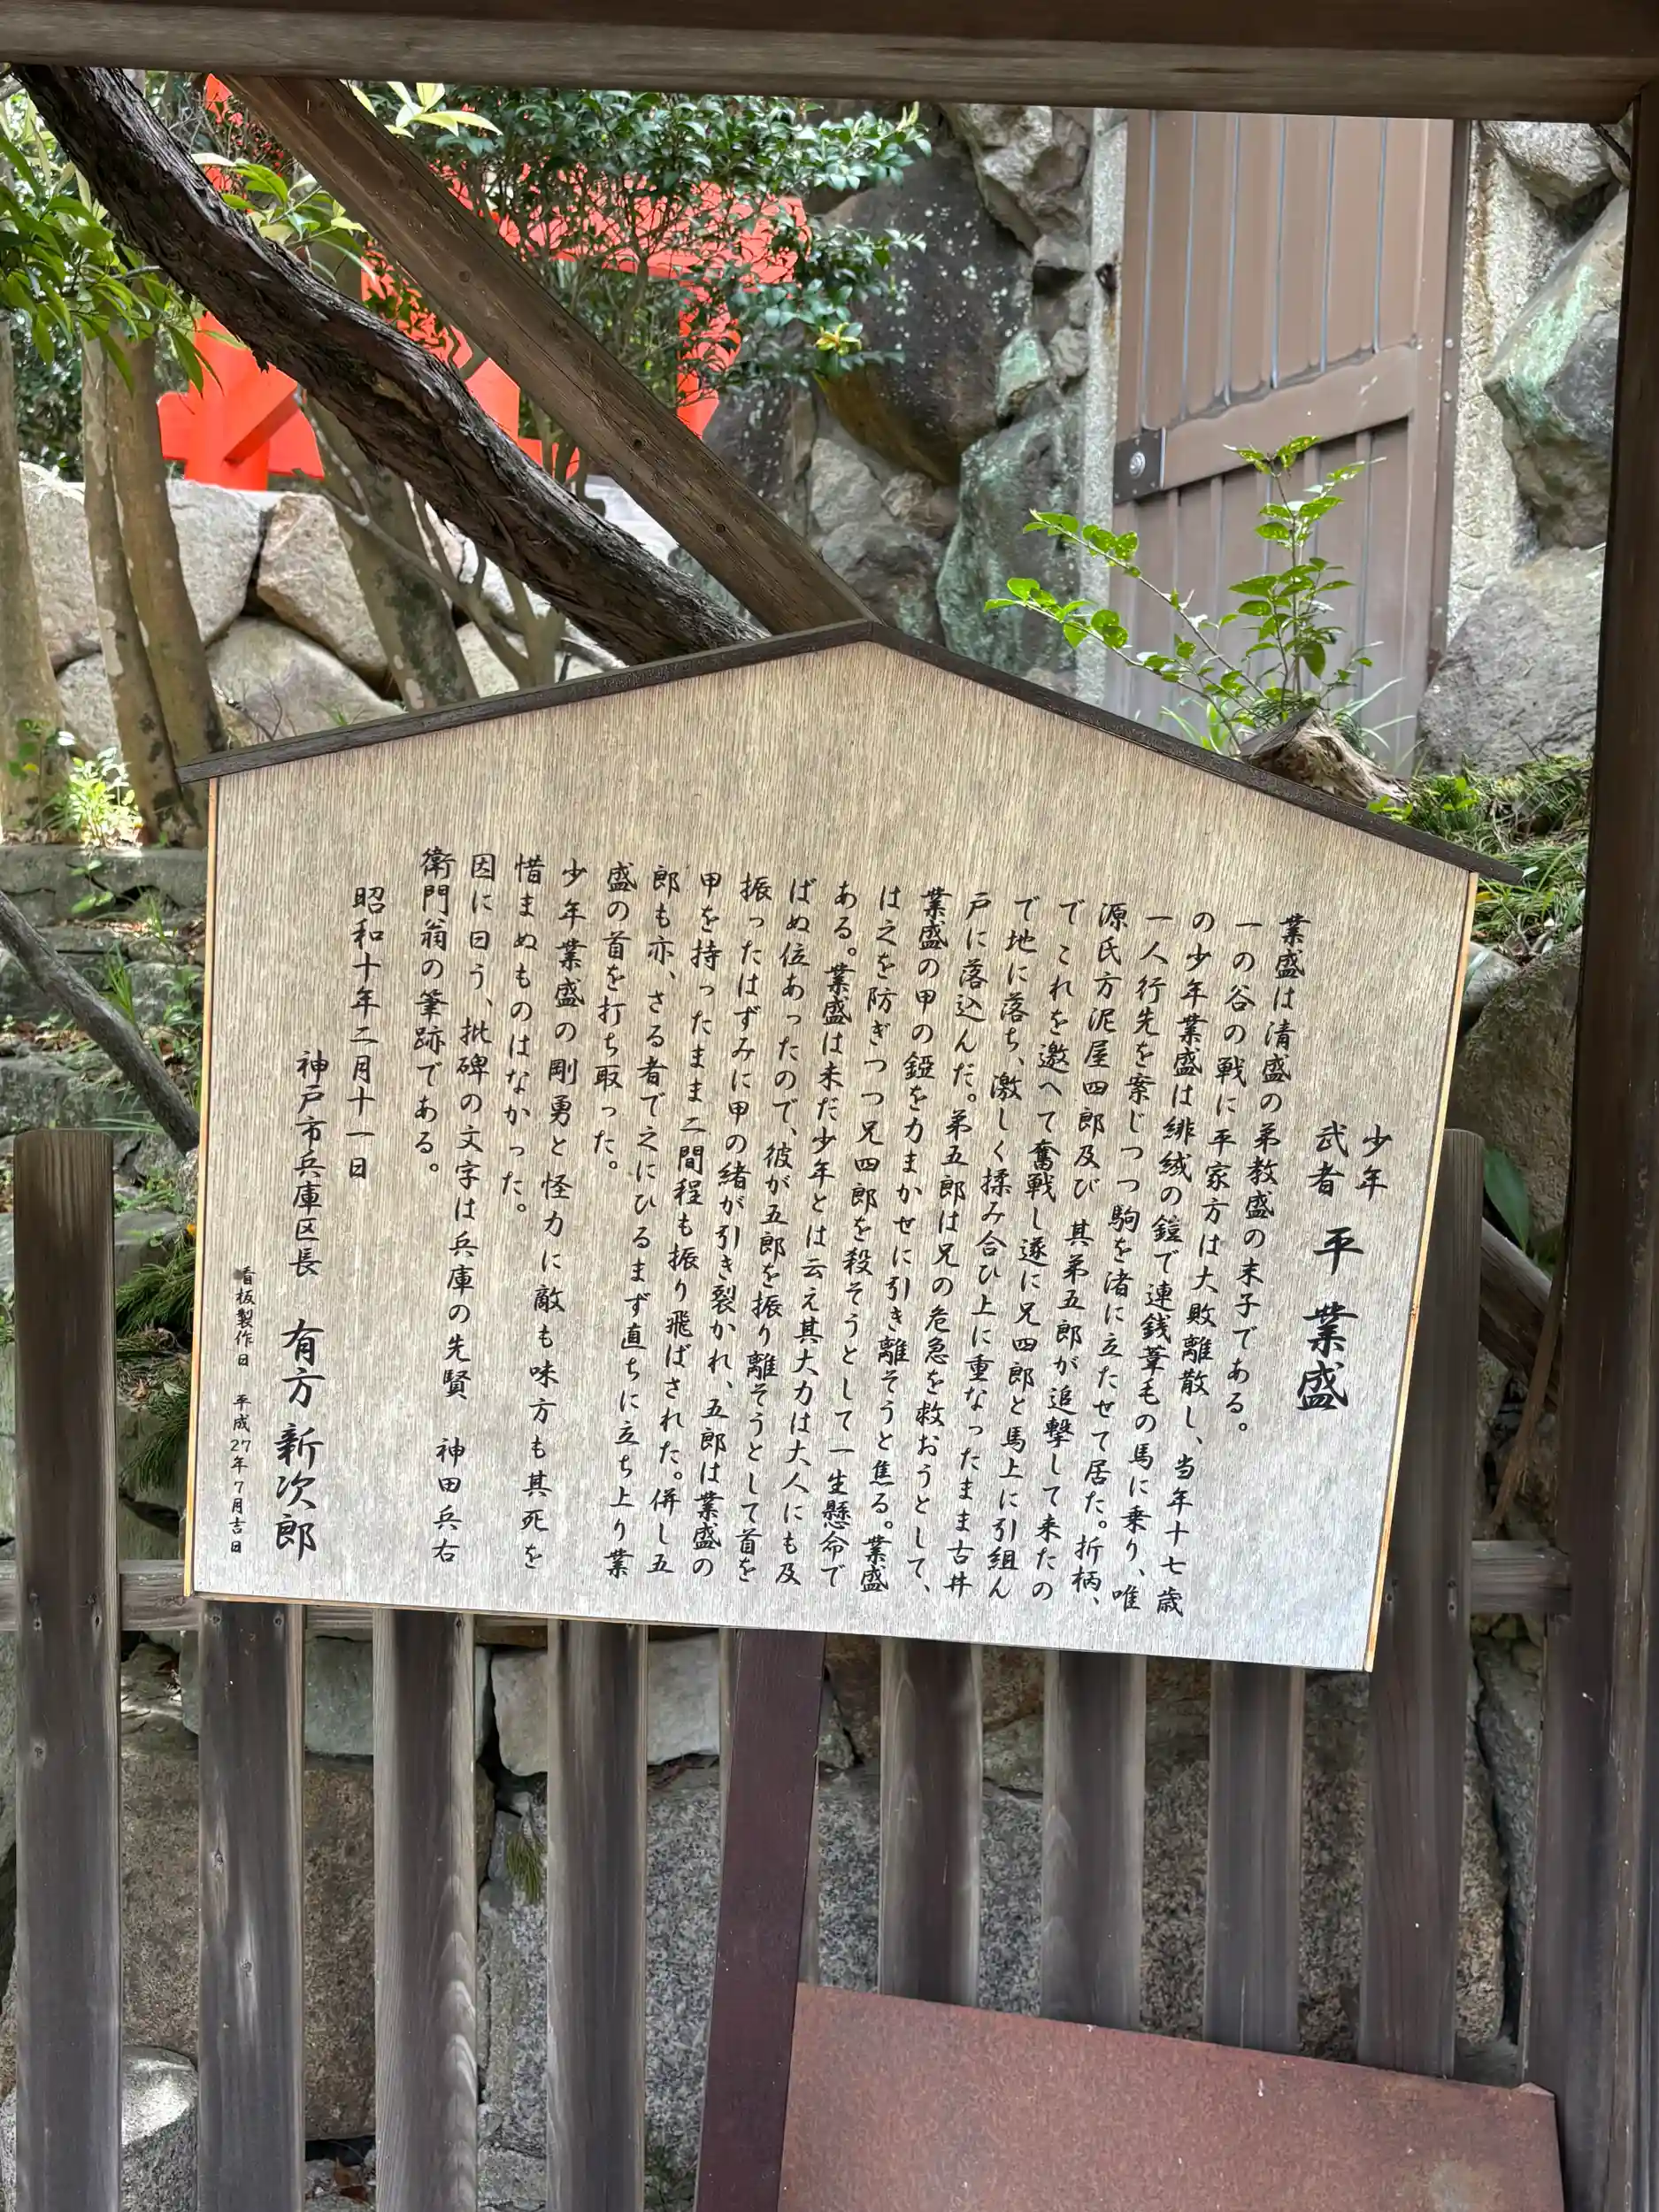 少年
武者 平 業盛
業盛は清盛の弟教盛の末子である。
一の谷の戦に平家方は大敗離散し、当年十七歳
の少年業盛は緋絨の鎧で連銭葦毛の馬に乗り、唯
一人行先を案じつつ駒を渚に立たせて居た。折柄、
源氏方泥屋四郎及び 其弟五郎が追撃して来たの
でこれを邀へて奮戦し遂に兄四郎と馬上に引組ん
で地に落ち、激しく揉み合ひ上に重なったまま古井
戸に落込んだ。弟五郎は兄の危急を救おうとして、
業盛の甲の錏を力まかせに引き離そうと焦る。業盛
は之を防ぎつつ兄四郎を殺そうとして一生懸命で
ある。業盛は未だ少年とは云え其大力は大人にも及
ばぬ位あったので、彼が五郎を振り離そうとして首を
振ったはずみに甲の緒が引き裂かれ、五郎は業盛の
甲を持ったまま二間程も振り飛ばされた。併し五
郎も亦、さる者で之にひるまず直ちに立ち上り業
盛の首を打ち取った。
少年業盛の剛勇と怪力に敵も味方も其死を
惜まぬものはなかった。
因に曰う、批碑の文字は兵庫の先賢 神田兵右
衛門翁の筆跡である。
昭和十年二月十一日
神戸市兵庫区長 有方 新次郎
看板製作日 平成27年7月吉日